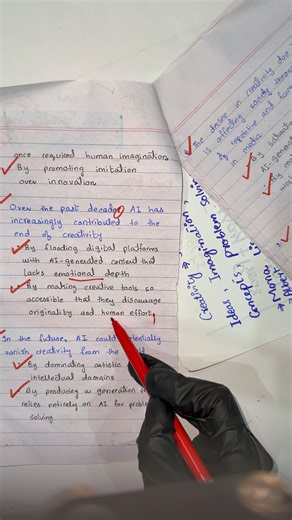 once required human imagination
By promoting imitation
over innovation
Over the past decade, AI has
increasingly contributed to the
end of creativity
By flooding digital platforms
with AI-generated content that
lacks emotional depth
By making creative tools so
accessible that they discourage
originality and human effort
In the future, AI could potentially
vanish creativity from the
By dominating artistic
intellectual domains
By producing a generation
relies entirely on AI for
solving
The decline in creativity due
is affecting society
by repetitive and
in media
By
AI-gene
By
Creativity
Ideas, Imagination,
Concepts, Problem